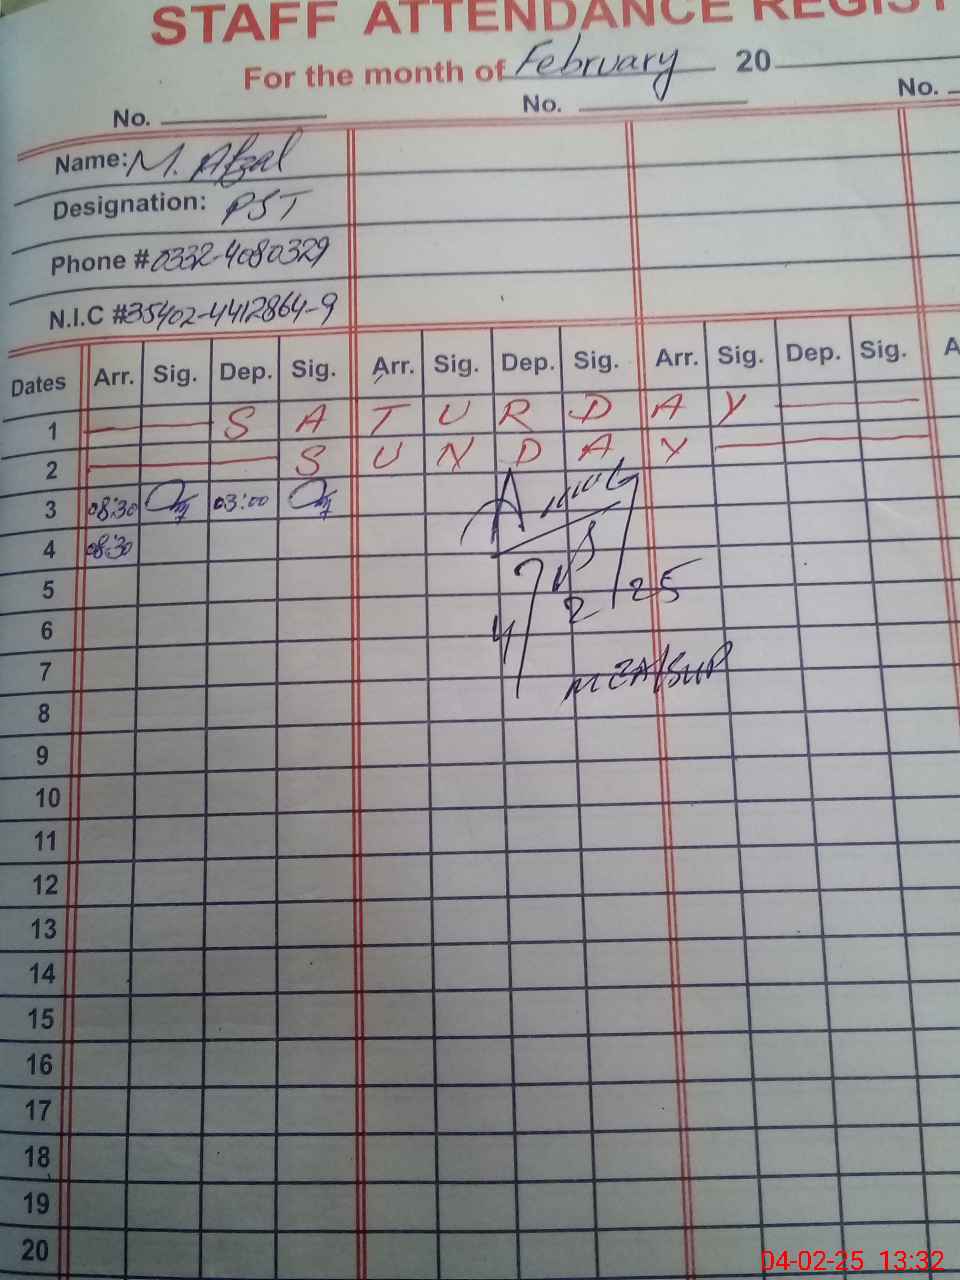 STAFF ATTENDANCE REGIST
For the month of February 20
No. No. No.
Name: M. Afzal
Designation: PST
Phone # 0332-4080329
N.I.C # 35402-4412864-9
Dates Arr. Sig. Dep. Sig. Arr. Sig. Dep. Sig. Arr. Sig. Dep. Sig. A
1 S A T U R D A Y
2 S U N D A Y
3 08:30 03:00
4 08:30
5
4/2/25
6
7 MEA/SUP
8
9
10
11
12
13
14
15
16
17
18
19
20
04-02-25 13:32